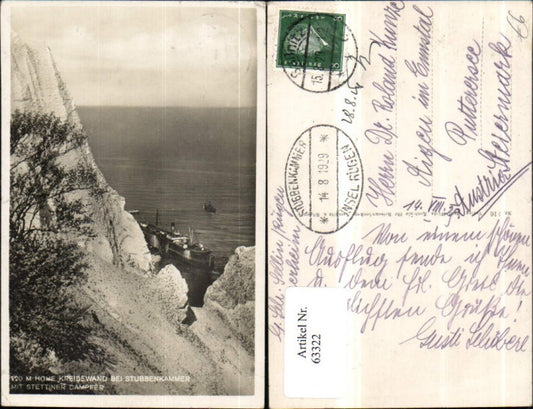 120 M HOHE KREIDEWAND BEI STUBBENKAMMER
MIT STETTINER DAMPFER
66
STUBBENKAMMER
* 14 8 1929 *
INSEL RÜGEN
Herrn Dr. Roland Kunze
Aigen im Ennstal
Putterersee
Steiermark
Austria
14. VIII.
Von einem schönen
Ausflug sende ich Ihnen
u. dem
herzlichsten Grüße!
Gusti
Artikel Nr.
63322